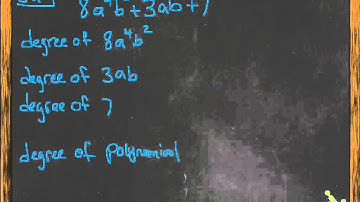 8a⁴b²+3ab+7
degree of 8a⁴b²
degree of 3ab
degree of 7
degree of polynomial